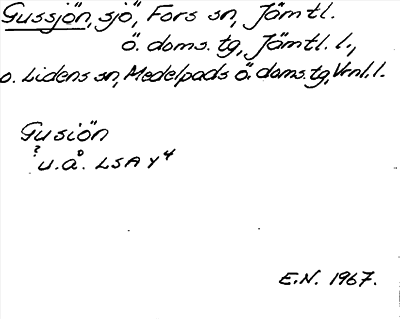 Gussjön, sjö, Fors sn, Jämtl.
ö. doms. tg, Jämtl. l.,
o. Lidens sn, Medelpads ö. doms. tg, Vrnl. l.
Gusiön
? u. å. LSA Y4
E.N. 1967.